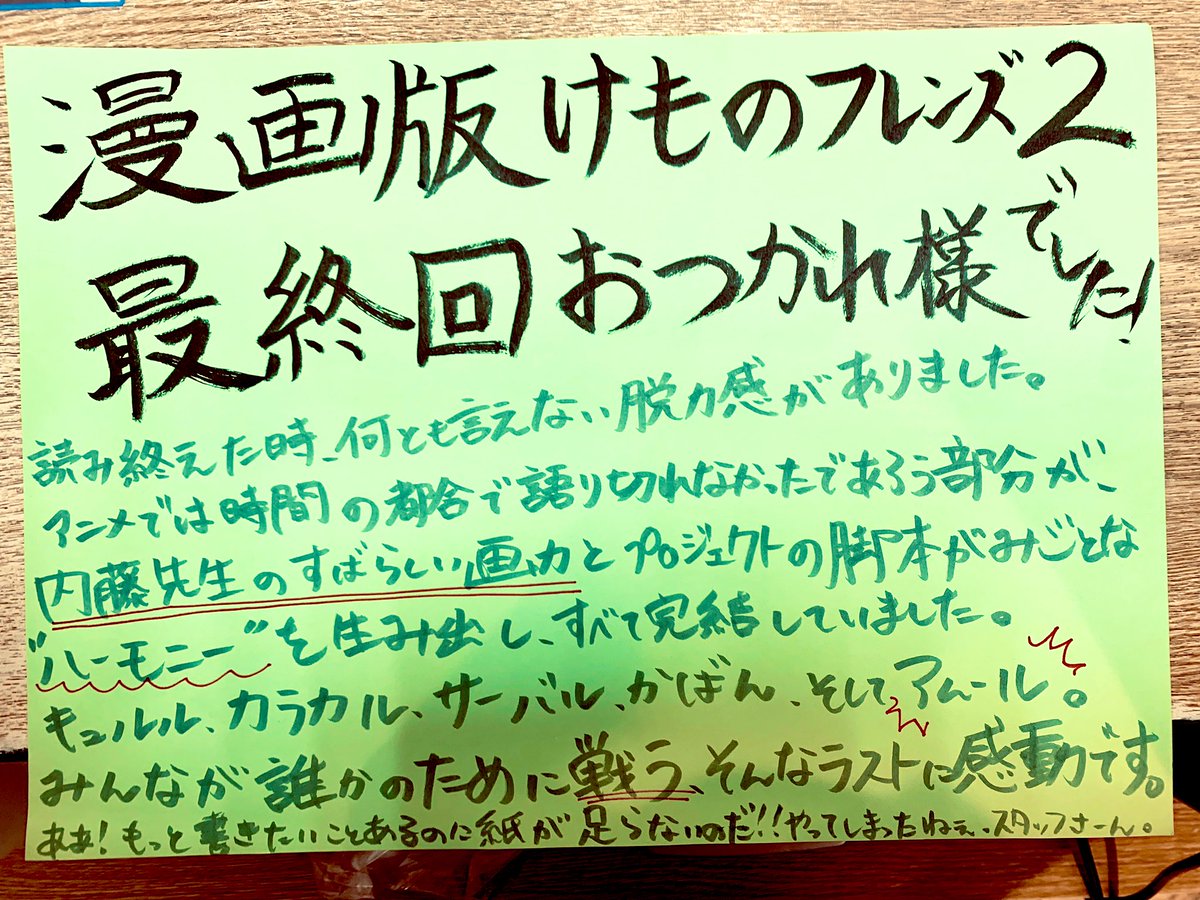 漫画版けものフレンズ2
最終回おつかれ様でした!
読み終えた時、何とも言えない脱力感がありました。
アニメでは時間の都合で語り切れなかったであろう部分が、
内藤先生のすばらしい画力とプロジェクトの脚本がみごとな
"ハーモニー"を生み出し、すべて完結していました。
キュルル、カラカル、サーバル、かばん、そしてアムール。
みんなが誰かのために戦う、そんなラストに感動です。
ああ!もっと書きたいことあるのに紙が足らないのだ!!やってしまったねぇ、スタッフさーん。